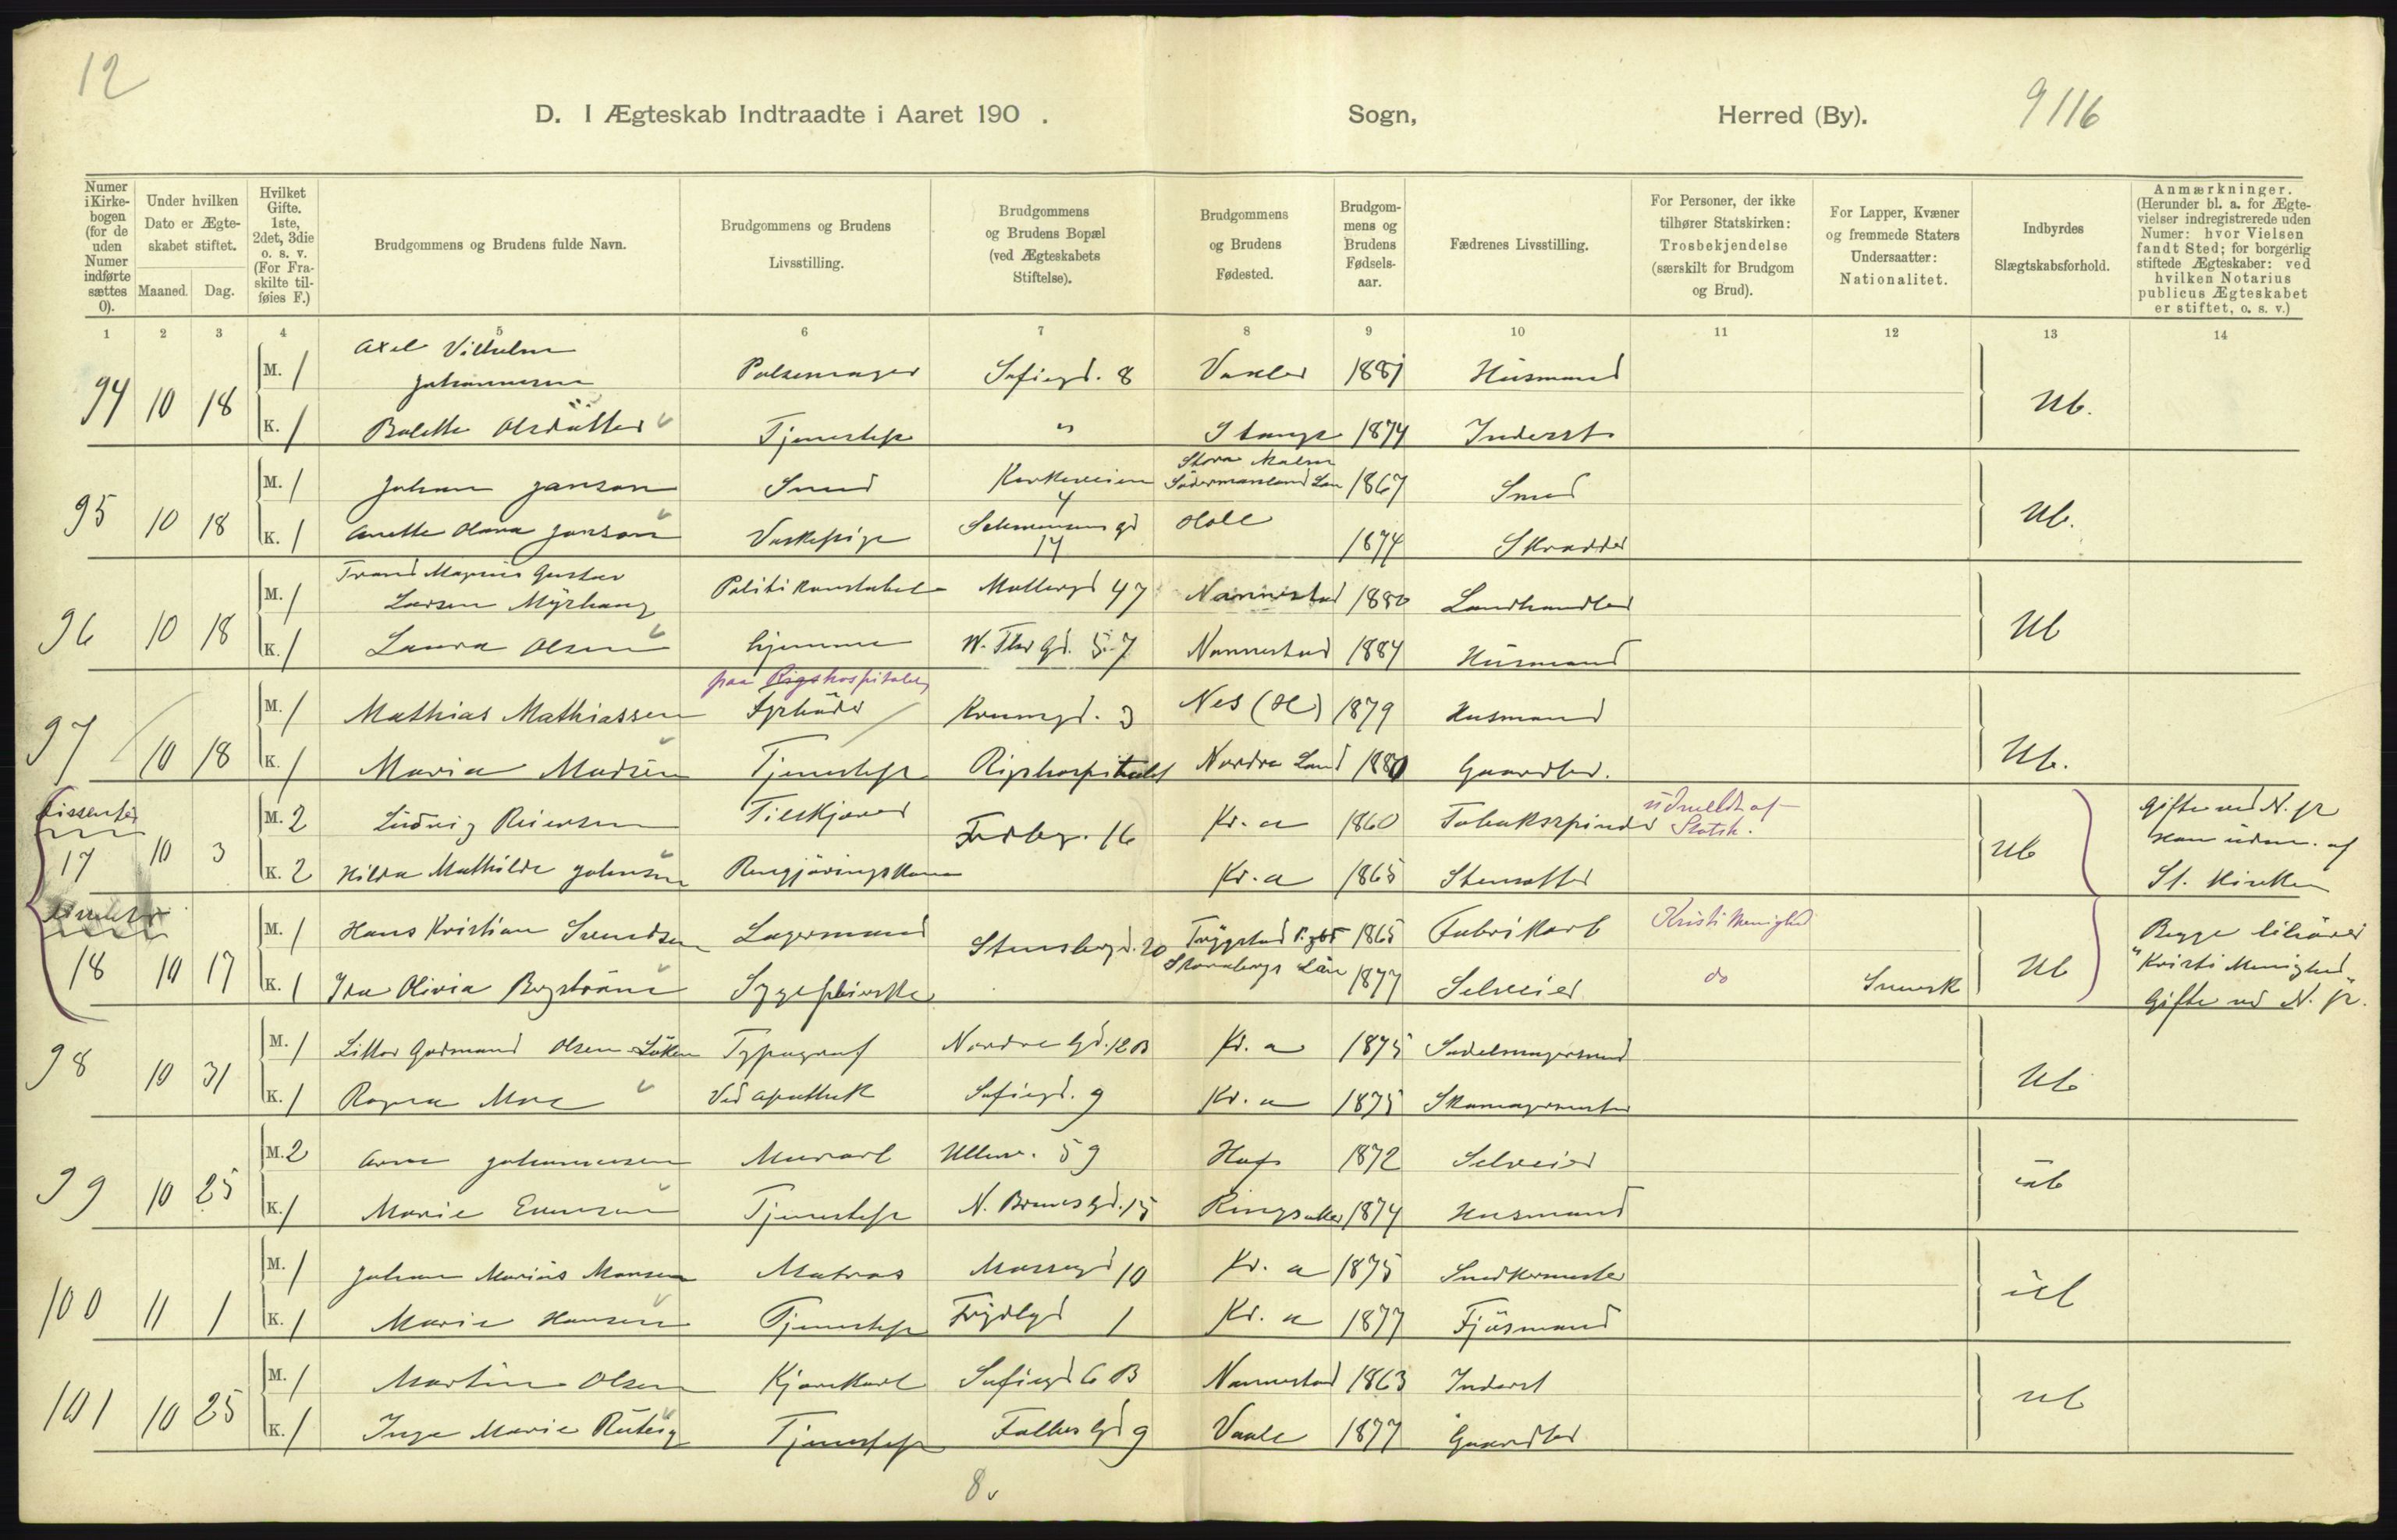 12
D. I Ægteskab Indtraadte i Aaret 190 . Sogn, Herred (By). 9116
Numer i Kirkebogen (for de uden Numer indførte sættes 0).
Under hvilken Dato er Ægteskabet stiftet.
Maaned. Dag.
Hvilket Gifte. 1ste, 2det, 3die o. s. v. (For Fraskilte tilføies F.)
Brudgommens og Brudens fulde Navn.
Brudgommens og Brudens Livsstilling.
Brudgommens og Brudens Bopæl (ved Ægteskabets Stiftelse).
Brudgommens og Brudens Fødested.
Brudgommens og Brudens Fødselsaar.
Fædrenes Livsstilling.
For Personer, der ikke tilhører Statskirken: Trosbekjendelse (særskilt for Brudgom og Brud).
For Lapper, Kvæner og fremmede Staters Undersaatter: Nationalitet.
Indbyrdes Slægtskabsforhold.
Anmærkninger. (Herunder bl. a. for Ægtevielser indregistrerede uden Numer: hvor Vielsen fandt Sted; for borgerlig stiftede Ægteskaber: ved hvilken Notarius publicus Ægteskabet er stiftet, o. s. v.)
1 2 3 4 5 6 7 8 9 10 11 12 13 14
94 10 18 M. 1 Axel Vilhelm Johannesen Pølsemager Sofiegd. 8 Vaaler 1881 Husmand Ub.
K. 1 Bolette Olsdatter Tjenestepige " Stange 1874 Inderst
95 10 18 M. 1 Johan Janson Smed Kirkeveien 4 Stora Malm Södermanland Län 1867 Smed Ub.
K. 1 Anette Olava Jonson Vaskepige gd 14 Hole 1874 Skrædder
96 10 18 M. 1 Magnus Gustav Larsen Myrhaug Politikonstabel Møllergd 47 Nannestad 1880 Landhandler Ub
K. 1 Laura Olsen hjemme W. Thr Gd. 57 Nannestad 1884 Husmand
97 10 18 M. 1 Mathias Mathiassen Fyrbøder paa Rigshospitalet 3 Nes (H) 1879 Husmand Ub.
K. 1 Maria Madsen Tjenestepige Rigshospitalet Nordre Land 1880 Gaardbr.
Dissenter 17 10 3 M. 2 Ludvig Reiersen Tilskjærer Fredbg. 16 Kr. a 1860 Tobakspinder udmeldt af Statsk. Ub Gifte ved N. p. Han udm. af St. Kirken
K. 2 Hilda Mathilde Johnsen Rengjøringskone Kr. a 1865 Stensætter
18 10 17 M. 1 Hans Kristian Svendsen Lagermand Stensbergd. 20 Trøgstad 1865 Fabrikarb Kristi Menighed Ub Begge tilhører "Kristi Menighed" Gifte ved N. p.
K. 1 Ida Olivia Bergstrøm Sygepleierske Skaraborgs Län 1877 Selveier do Svensk
98 10 31 M. 1 Godmand Olsen Løken Typograf Nordre Gd. 12 B Kr. a 1875 Sadelmagersvend Ub
K. 1 Ragna Moe Ved Apothek Sofiegd. 9 Kr. a 1875 Skomagermester
99 10 25 M. 2 Arne Johannesen Murarb Ullev. 59 Hof 1872 Selveier Ub
K. 1 Marie Evensen Tjenestepige N. Brunsgd. 15 Ringsaker 1874 Husmand
100 11 1 M. 1 Johan Marius Monsen Matros Mossegd 10 Kr. a 1875 Snedkermester Ub
K. 1 Marie Hansen Tjenestepige 1 Kr. a 1877 Fjøsmand
101 10 25 M. 1 Martin Olsen Kjørekarl Sofiegd 6 B Nannestad 1863 Inderst Ub
K. 1 Inga Marie Tjenestepige Falbes Gd 9 Vaale 1877 Gaardbr
8.